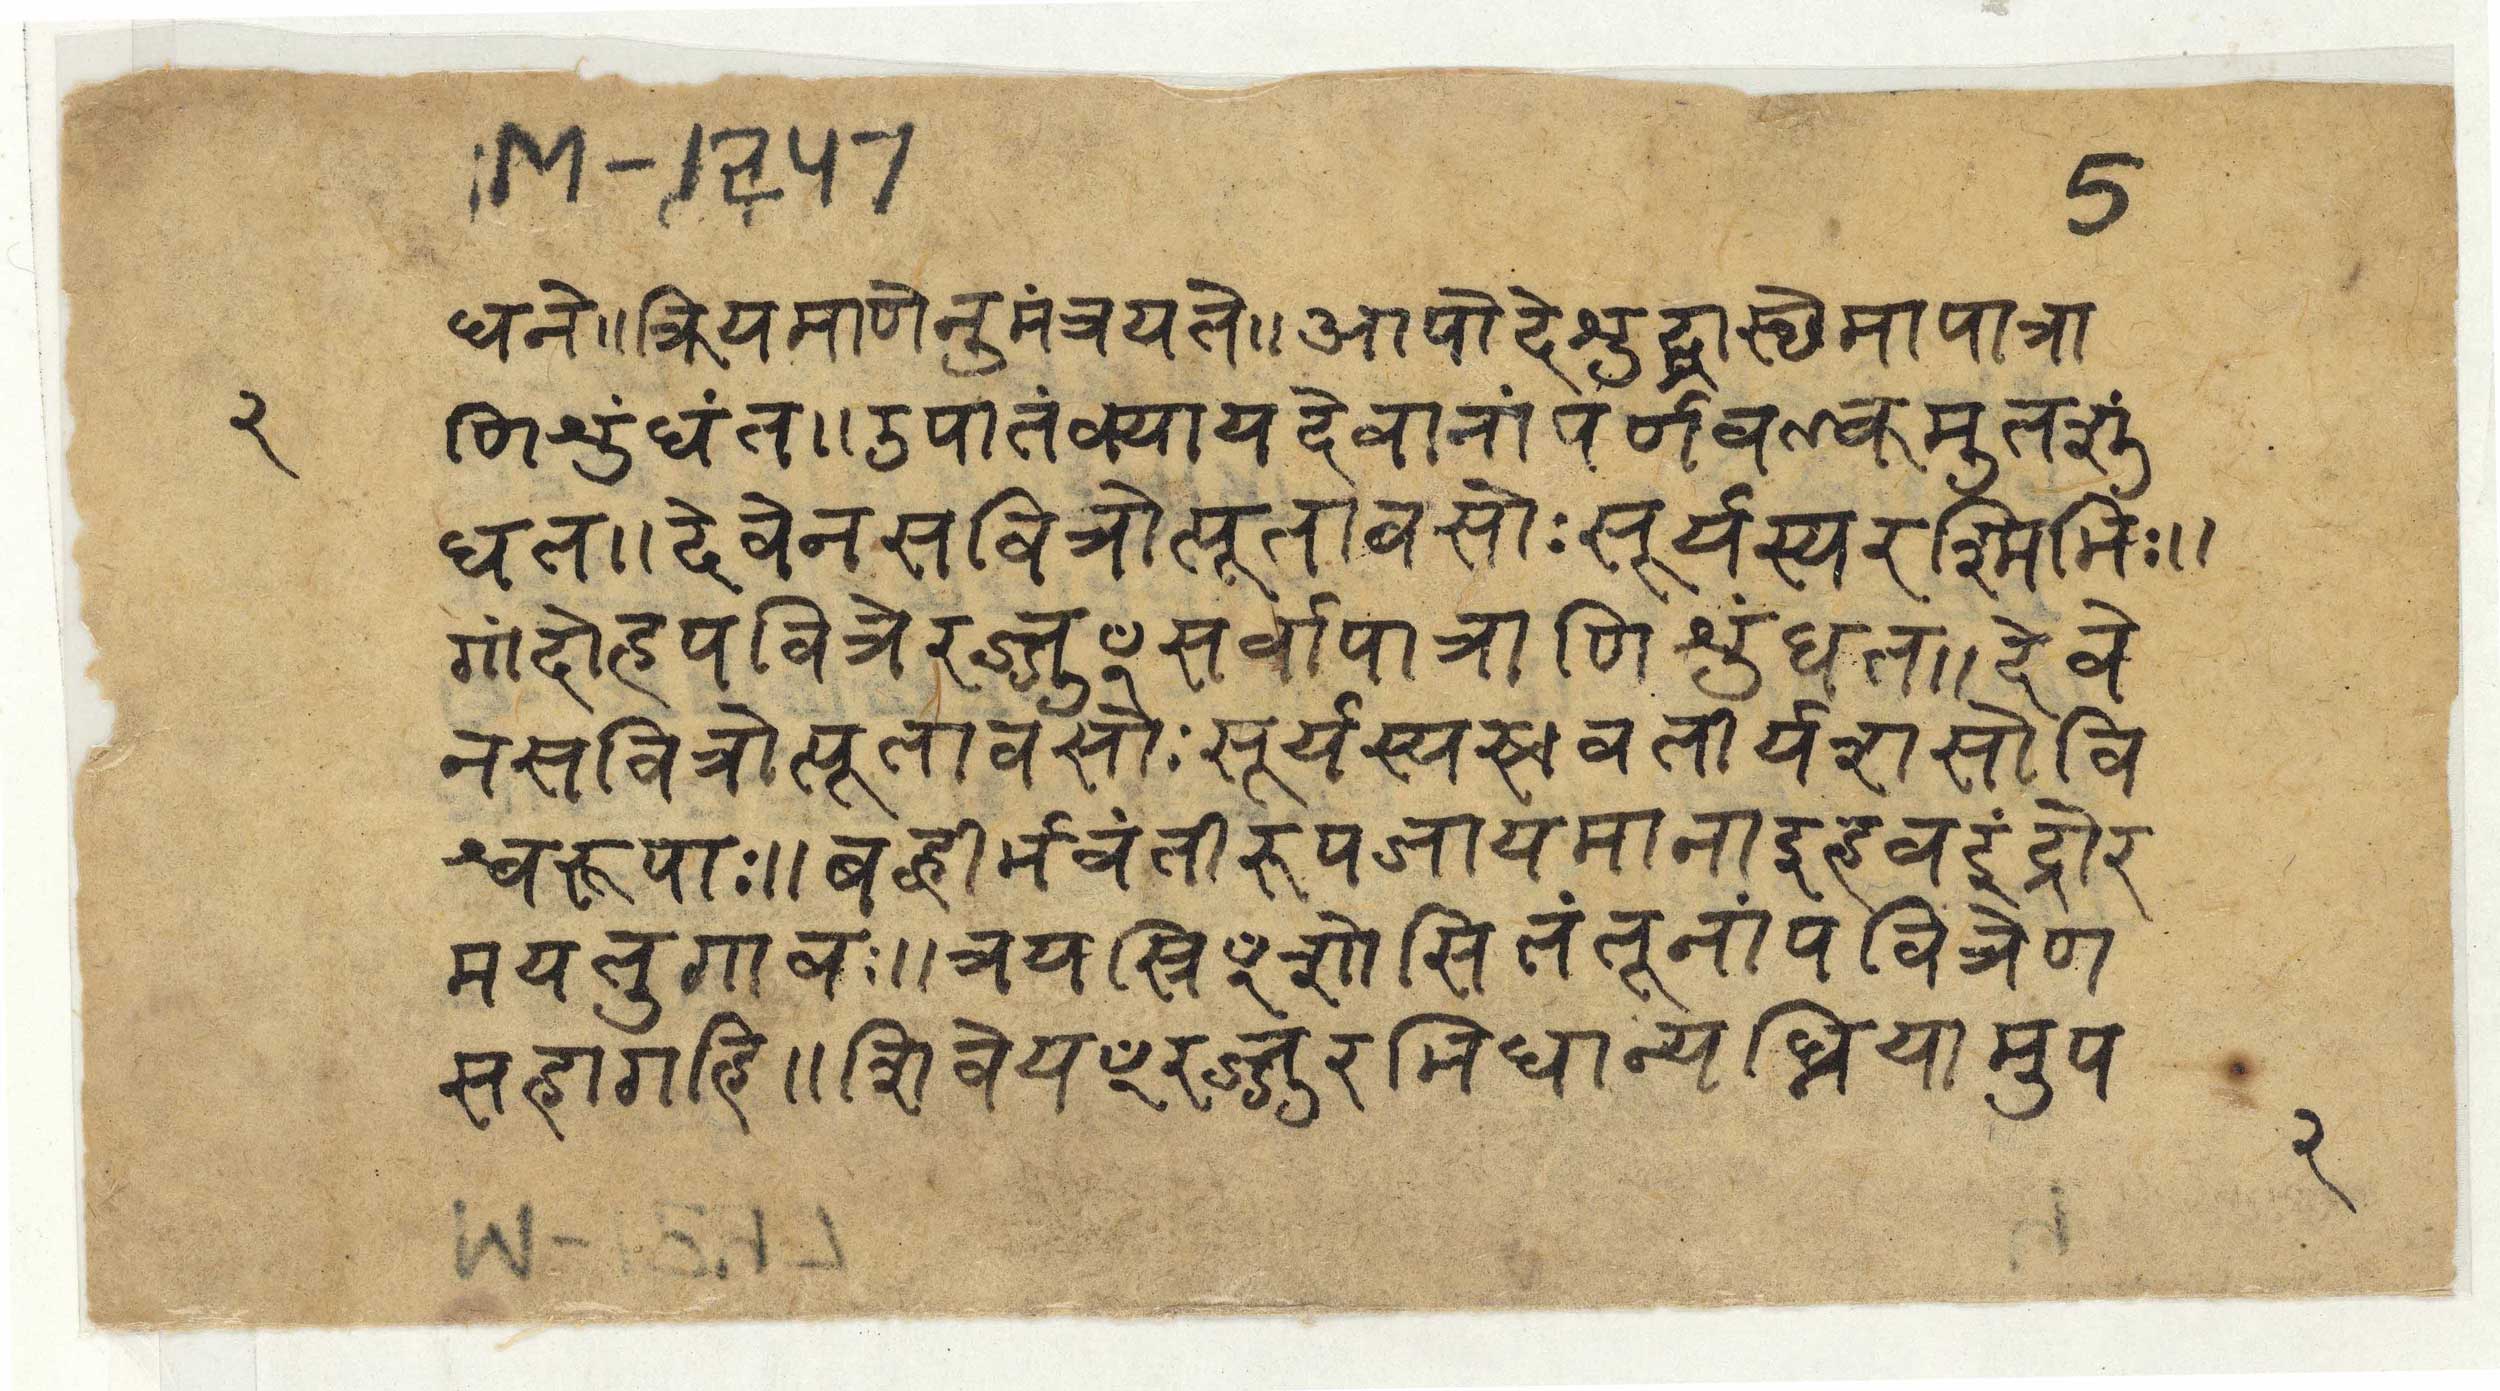 M-1247
5
धने॥क्रियमाणेनुमंत्रयते॥आपोदेशुद्धास्थेमापात्रा
२
णिशुंधंत॥उपातंक्यायदेवानांपर्णवल्कमुतशुं
धत॥देवेनसवित्रोत्पूतावसोःसूर्यस्यरश्मिभिः॥
गांदोहपवित्रेरज्जुꣳसर्वापात्राणिशुंधत॥देवे
नसवित्रोत्पूतावसोःसूर्यस्य चरासोवि
श्वरूपाः॥बह्वीर्भवंतीरूपजायमानाइहवइंद्रोर
मयतुगावः॥त्रयस्त्रिꣳशोसितंतूनांपवित्रेण
सहागहि॥शिवेयꣳरज्जुरभिधान्यघ्नियामुप
२